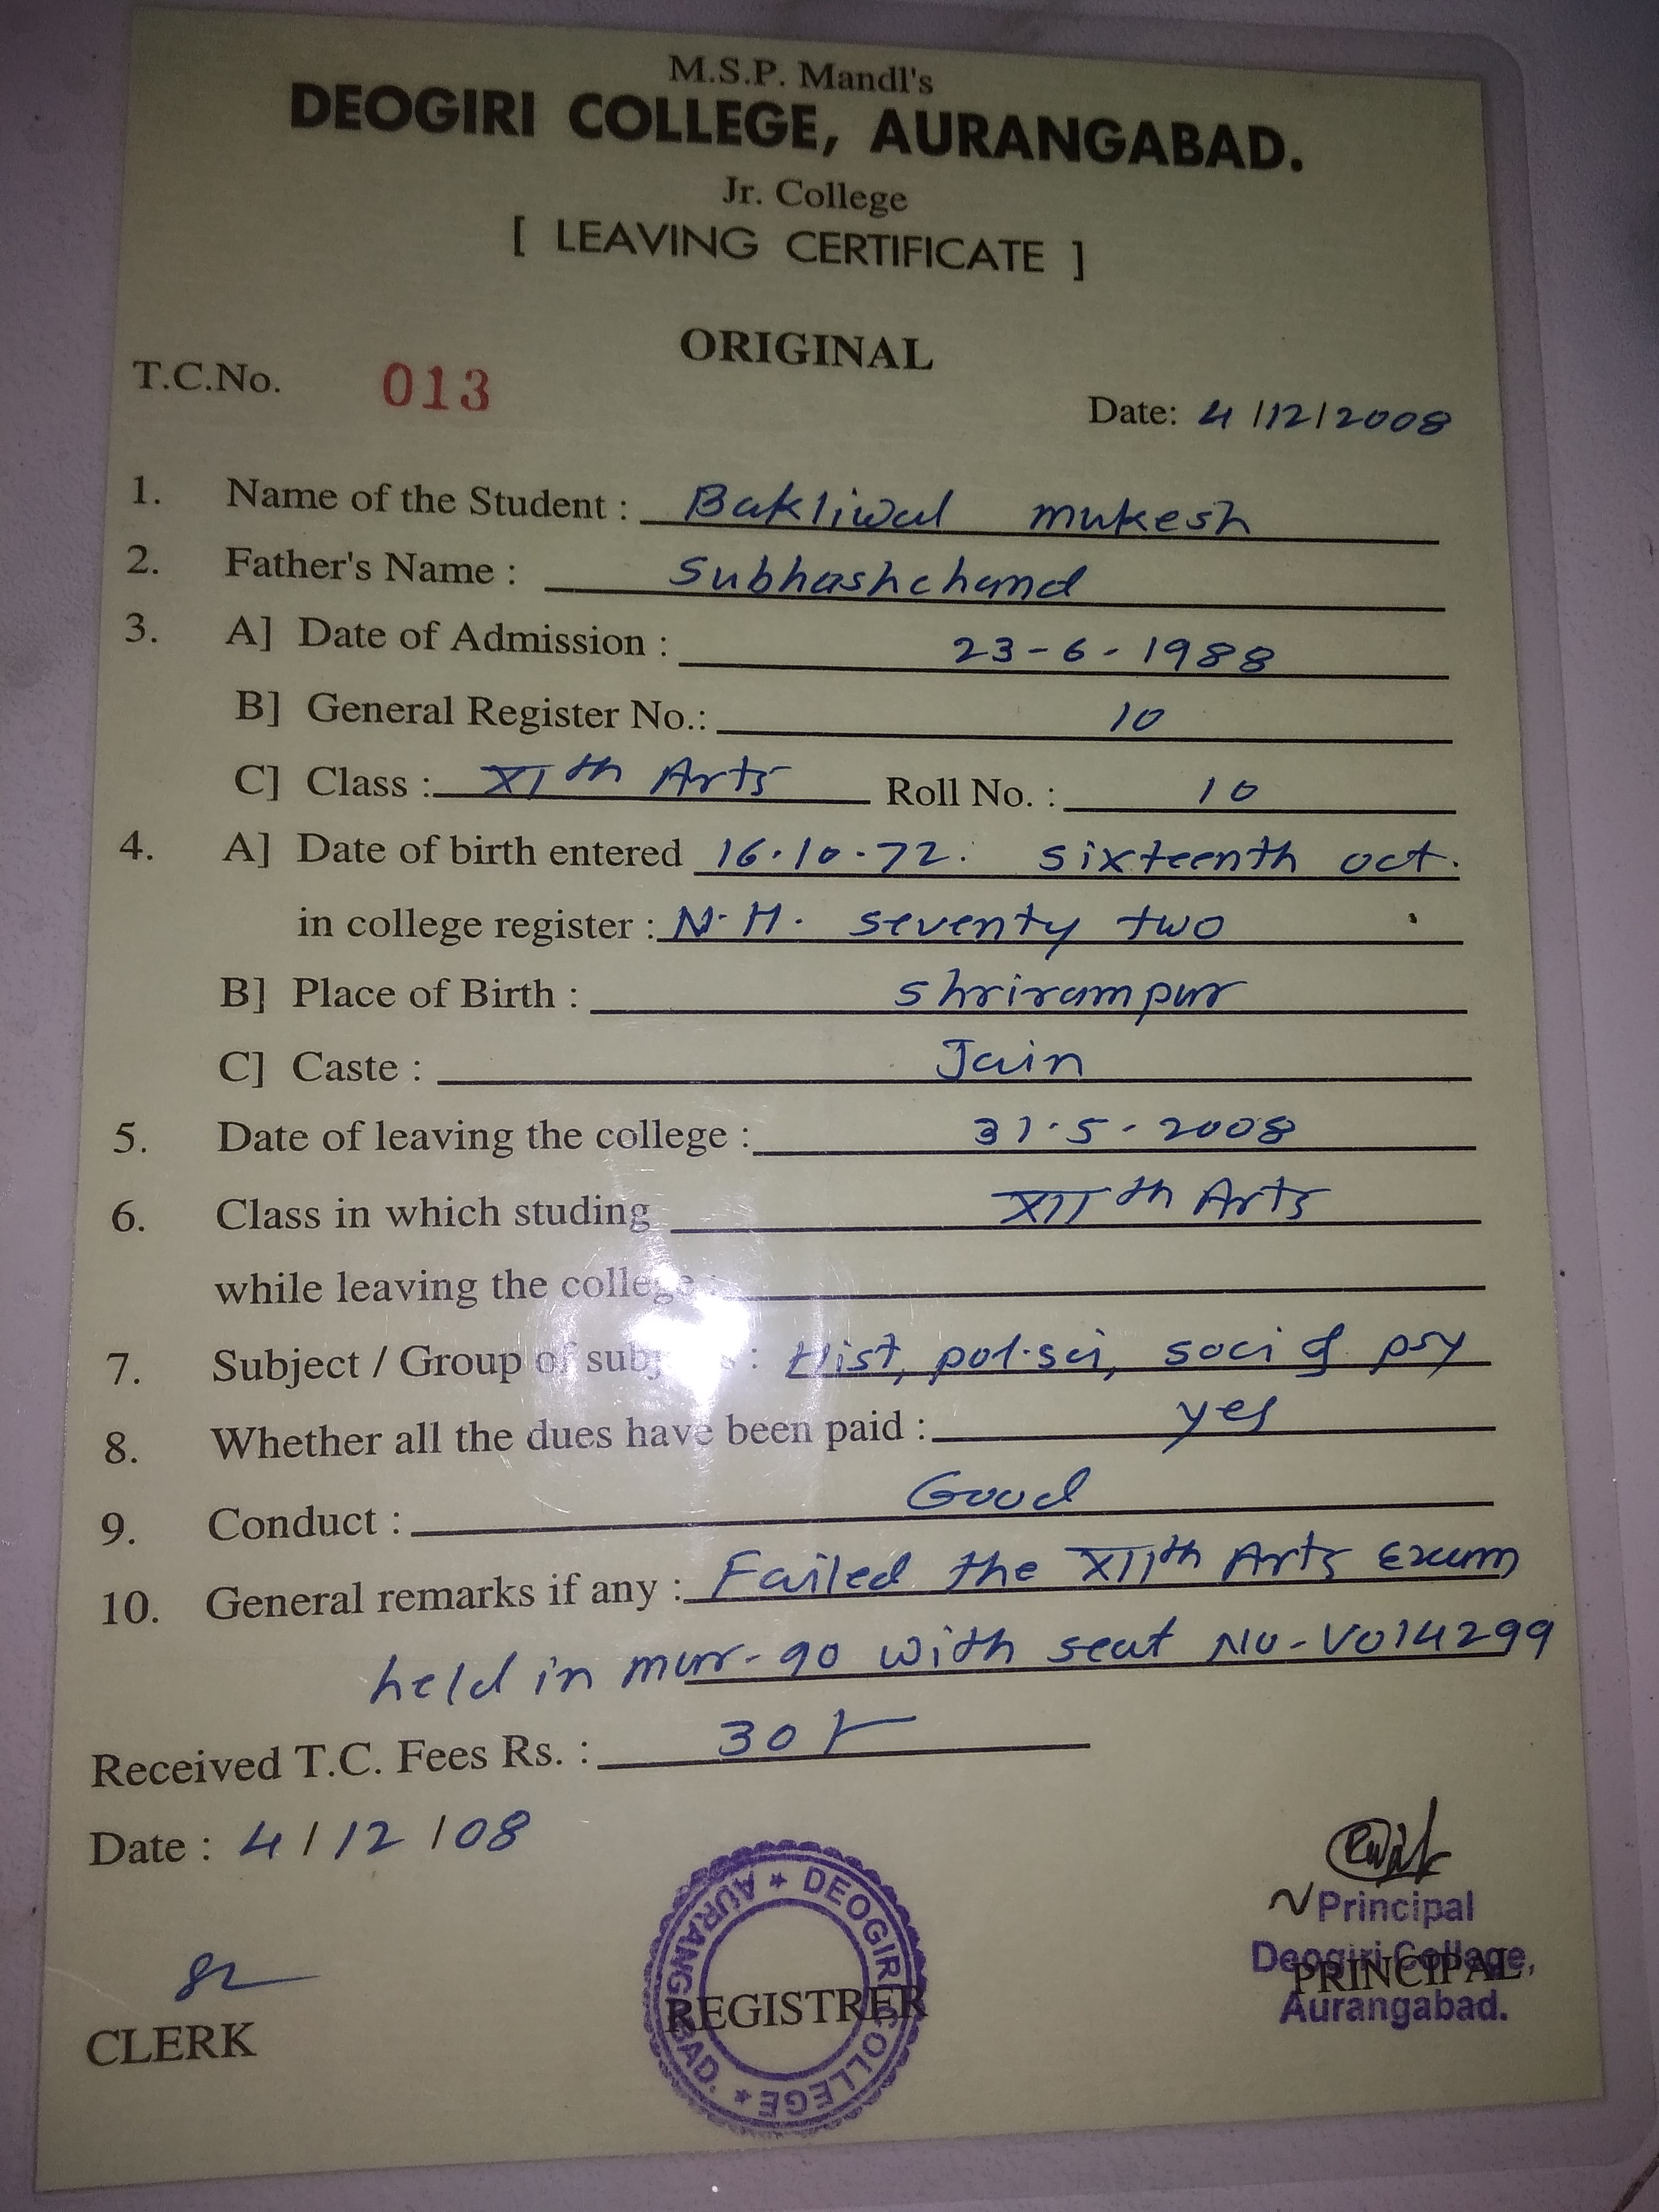 M.S.P. Mandl's
DEOGIRI COLLEGE, AURANGABAD.
Jr. College
[ LEAVING CERTIFICATE ]
ORIGINAL
T.C.No. 013
Date: 4/12/2008
1. Name of the Student : Bakliwal mukesh
2. Father's Name : Subhashchand
3. A] Date of Admission : 23-6-1988
B] General Register No.: 10
C] Class : XIth Arts Roll No. : 10
4. A] Date of birth entered 16.10.72. sixteenth oct.
in college register : N.H. seventy two
B] Place of Birth : shrirampur
C] Caste : Jain
5. Date of leaving the college : 31.5.2008
6. Class in which studing XIIth Arts
while leaving the college :
7. Subject / Group of subj s : Hist, pol.sci, soci & psy
8. Whether all the dues have been paid : yes
9. Conduct : Good
10. General remarks if any : Failed the XIIth Arts Exam
held in mar-90 with seat No-V014299
Received T.C. Fees Rs. : 30/-
Date : 4/12/08
Principal
Deogiri College,
PRINCIPAL
Aurangabad.
DEOGIRI COLLEGE ★ AURANGABAD. ★
REGISTRER
CLERK